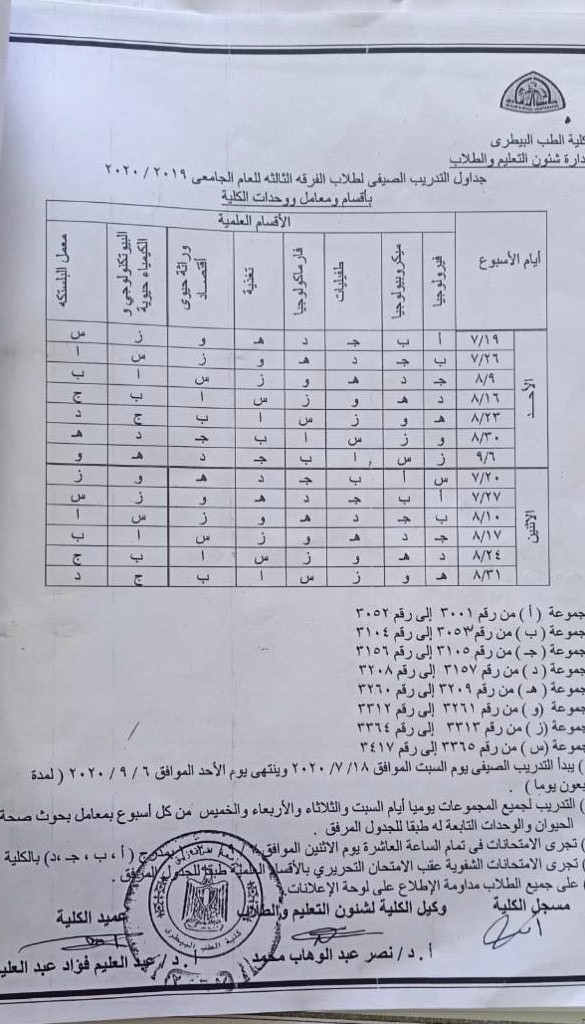 كلية الطب البيطرى
دارة شئون التعليم والطلاب
جداول التدريب الصيفى لطلاب الفرقه الثالثه للعام الجامعى ٢٠١٩ / ٢٠٢٠
بأقسام ومعامل ووحدات الكلية
أيام الأسبوع الأقسام العلمية
فيرولوجيا ميكروبيولوجيا طفيليات فارماكولوجيا تغذية وراثة حيوى أقتصاد البيوتكنولوجي و الكيمياء حيوية معمل الباستكه
الأحد
٧/١٩ أ ب جـ د هـ و ز س
٧/٢٦ ب جـ د هـ و ز س ا
٨/٩ جـ د هـ و ز س ا ب
٨/١٦ د هـ و ز س ا ب ج
٨/٢٣ هـ و ز س ا ب ج د
٨/٣٠ و ز س ا ب جـ د هـ
٩/٦ ز س ا ب جـ د هـ و
الاثنين
٧/٢٠ س أ ب جـ د هـ و ز
٧/٢٧ أ ب جـ د هـ و ز س
٨/١٠ ب جـ د هـ و ز س ا
٨/١٧ جـ د هـ و ز س ا ب
٨/٢٤ د هـ و ز س ا ب ج
٨/٣١ هـ و ز س ا ب ج د
جموعة ( أ ) من رقم ٣٠٠١ إلى رقم ٣٠٥٢
جموعة ( ب ) من رقم ٣٠٥٣ إلى رقم ٣١٠٤
جموعة ( جـ ) من رقم ٣١٠٥ إلى رقم ٣١٥٦
جموعة ( د ) من رقم ٣١٥٧ إلى رقم ٣٢٠٨
جموعة ( هـ ) من رقم ٣٢٠٩ إلى رقم ٣٢٦٠
جموعة ( و ) من رقم ٣٢٦١ إلى رقم ٣٣١٢
جموعة ( ز ) من رقم ٣٣١٣ إلى رقم ٣٣٦٤
جموعة ( س ) من رقم ٣٣٦٥ إلى رقم ٣٤١٧
) يبدأ التدريب الصيفى يوم السبت الموافق ٢٠٢٠/٧/١٨ وينتهى يوم الأحد الموافق ٦ / ٩ / ٢٠٢٠ ( لمدة
بعون يوما ) .
) التدريب لجميع المجموعات يوميا أيام السبت والثلاثاء والأربعاء والخميس من كل أسبوع بمعامل بحوث صحة
الحيوان والوحدات التابعة له طبقا للجدول المرفق .
) تجرى الامتحانات فى تمام الساعة العاشرة يوم الاثنين الموافق ( أ ، ب ، جـ ، د ) بالكلية
) تجرى الامتحانات الشفوية عقب الامتحان التحريري بالأقسام العلمية طبقا للجدول المرفق .
) على جميع الطلاب مداومة الإطلاع على لوحة الإعلانات
مسجل الكلية وكيل الكلية لشئون التعليم والطلاب عميد الكلية
أ . د / نصر عبد الوهاب محمد أ . د / عبد العليم فؤاد عبد العليم
كلية الطب البيطرى